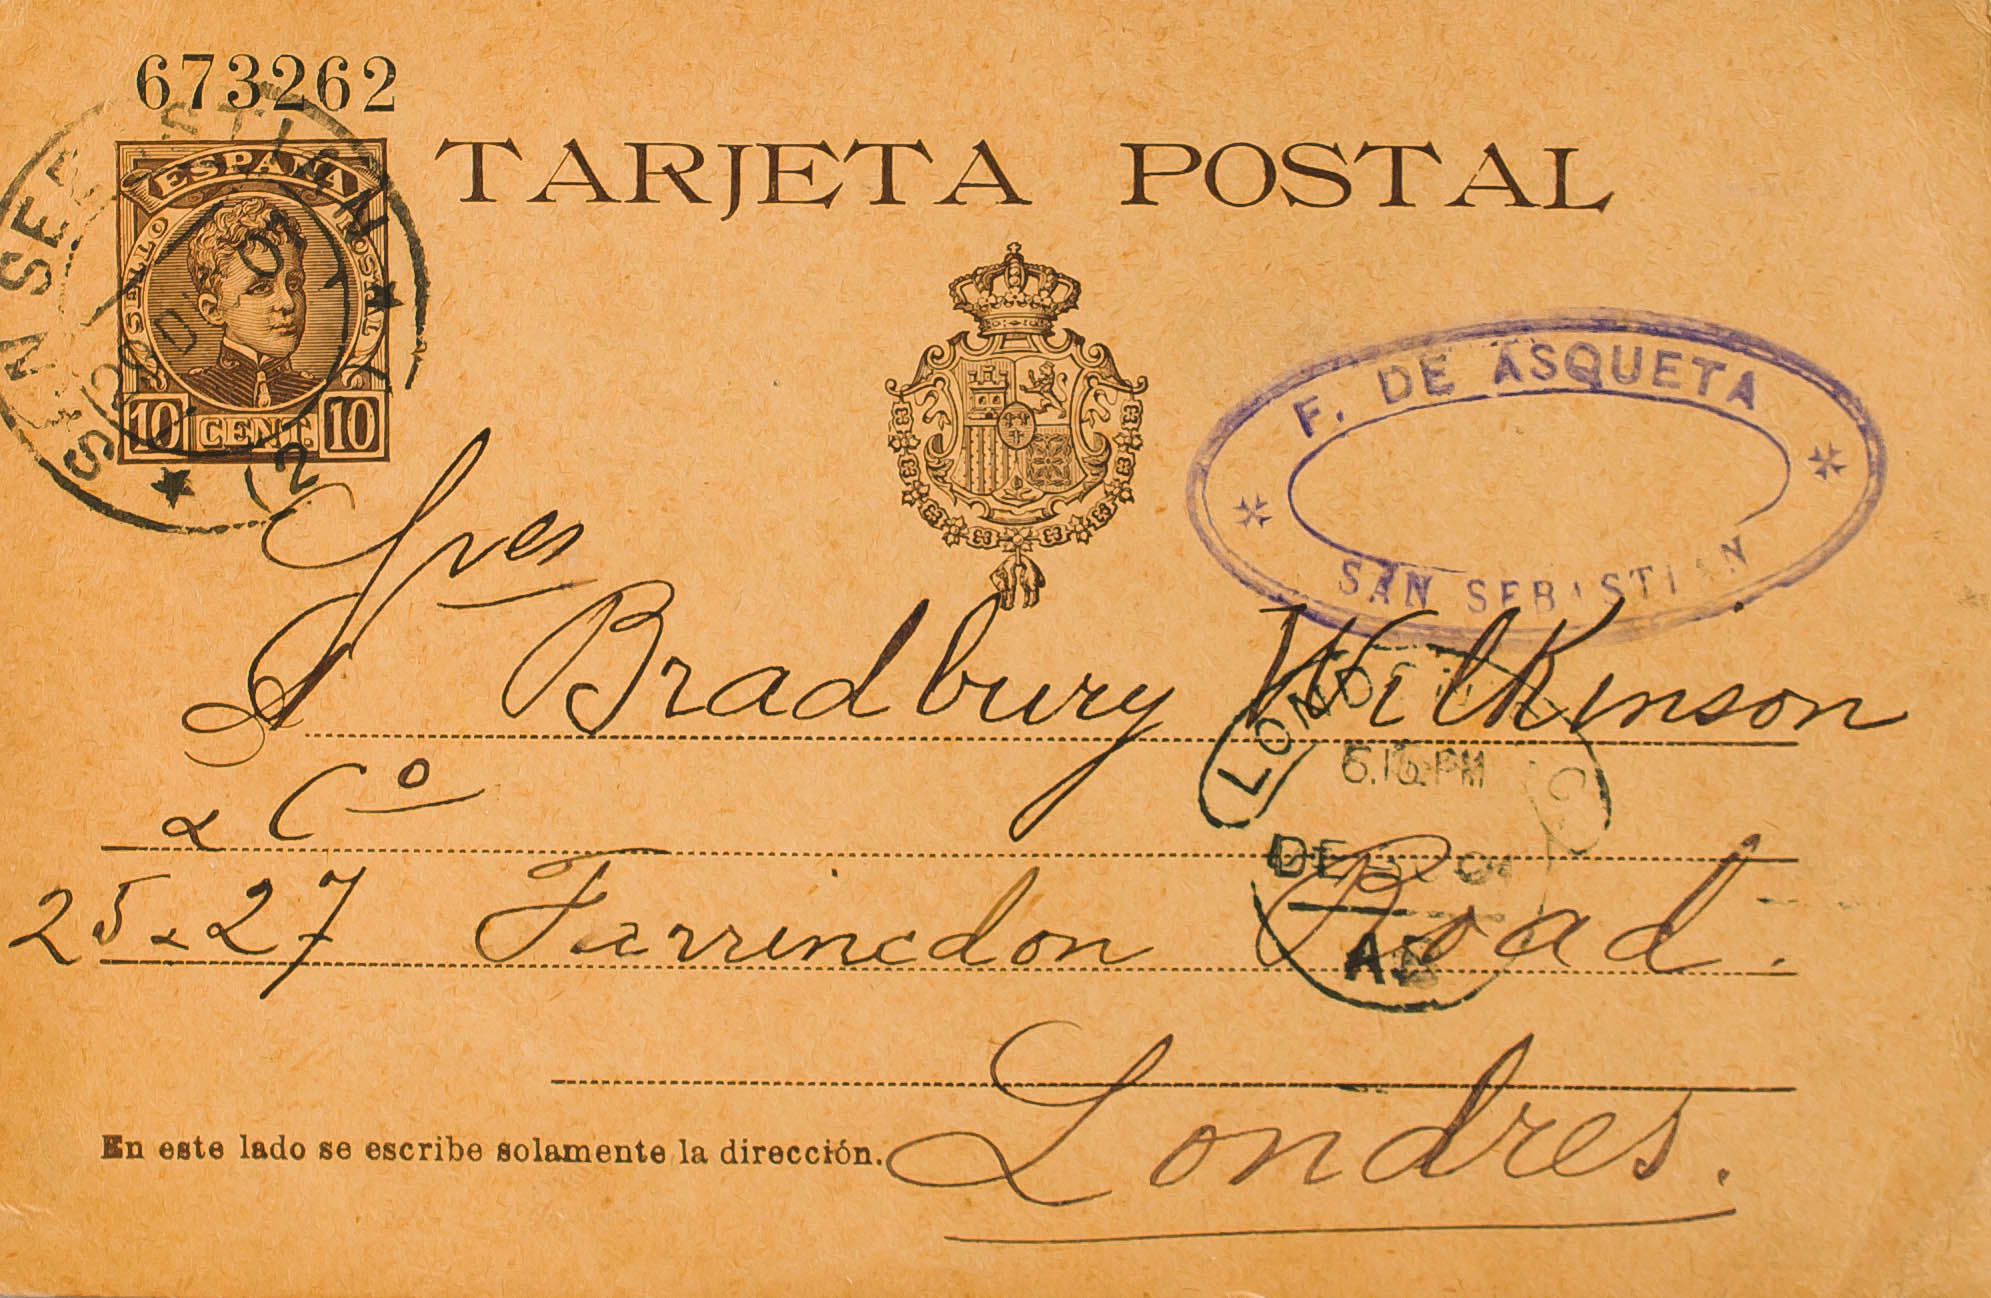 673262
ESPAÑA
SELLO POSTAL
10 CENT. 10
SAN SEBASTIAN
TARJETA POSTAL
F. DE ASQUETA
SAN SEBASTIAN
Sres
Bradbury Wilkinson
& Cº
LONDON
6.15 PM
DE
25 & 27 Farrincdon Road.
Londres.
En este lado se escribe solamente la dirección.